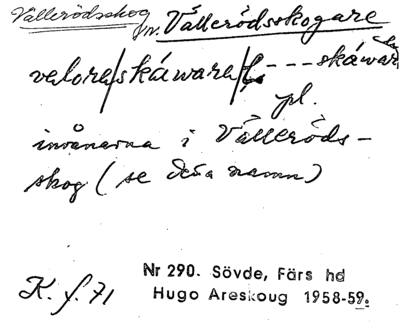 Vällerödsskog
m. Vällerödsskogare
valora/skáwara/(- - - -skáwar
pl.
invånarna i Välleröds-
skog (se detta namn)
K. f. 71
Nr 290. Sövde, Färs hd
Hugo Areskoug 1958-59.